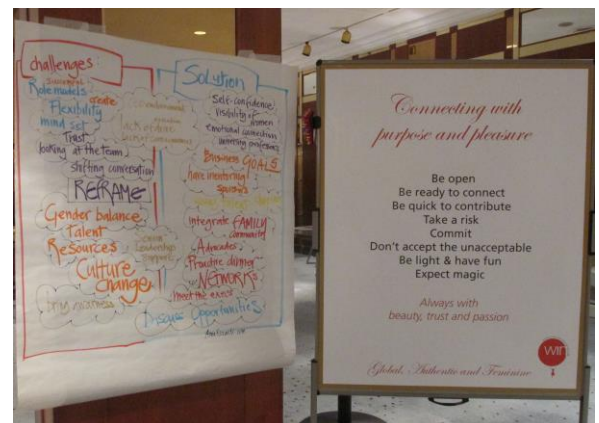 challenges:
Successful
Role models
create
Flexibility
mind set
Trust
looking at the team
shifting conversation
REFRAME
Gender balance
Talent
Resources
Senior
Leadership
Support
Culture
Change
Solution
Self-confidence
visibility of
women
emotional connection
Business GOALS
have mentoring
sponsors
integrate FAMILY
community
Advocates
Proactive dinner
NETWORKS
meet the execs
Discuss Opportunities
Connecting with
purpose and pleasure
Be open
Be ready to connect
Be quick to contribute
Take a risk
Commit
Don't accept the unacceptable
Be light & have fun
Expect magic
Always with
beauty, trust and passion
win
Global, Authentic and Feminine